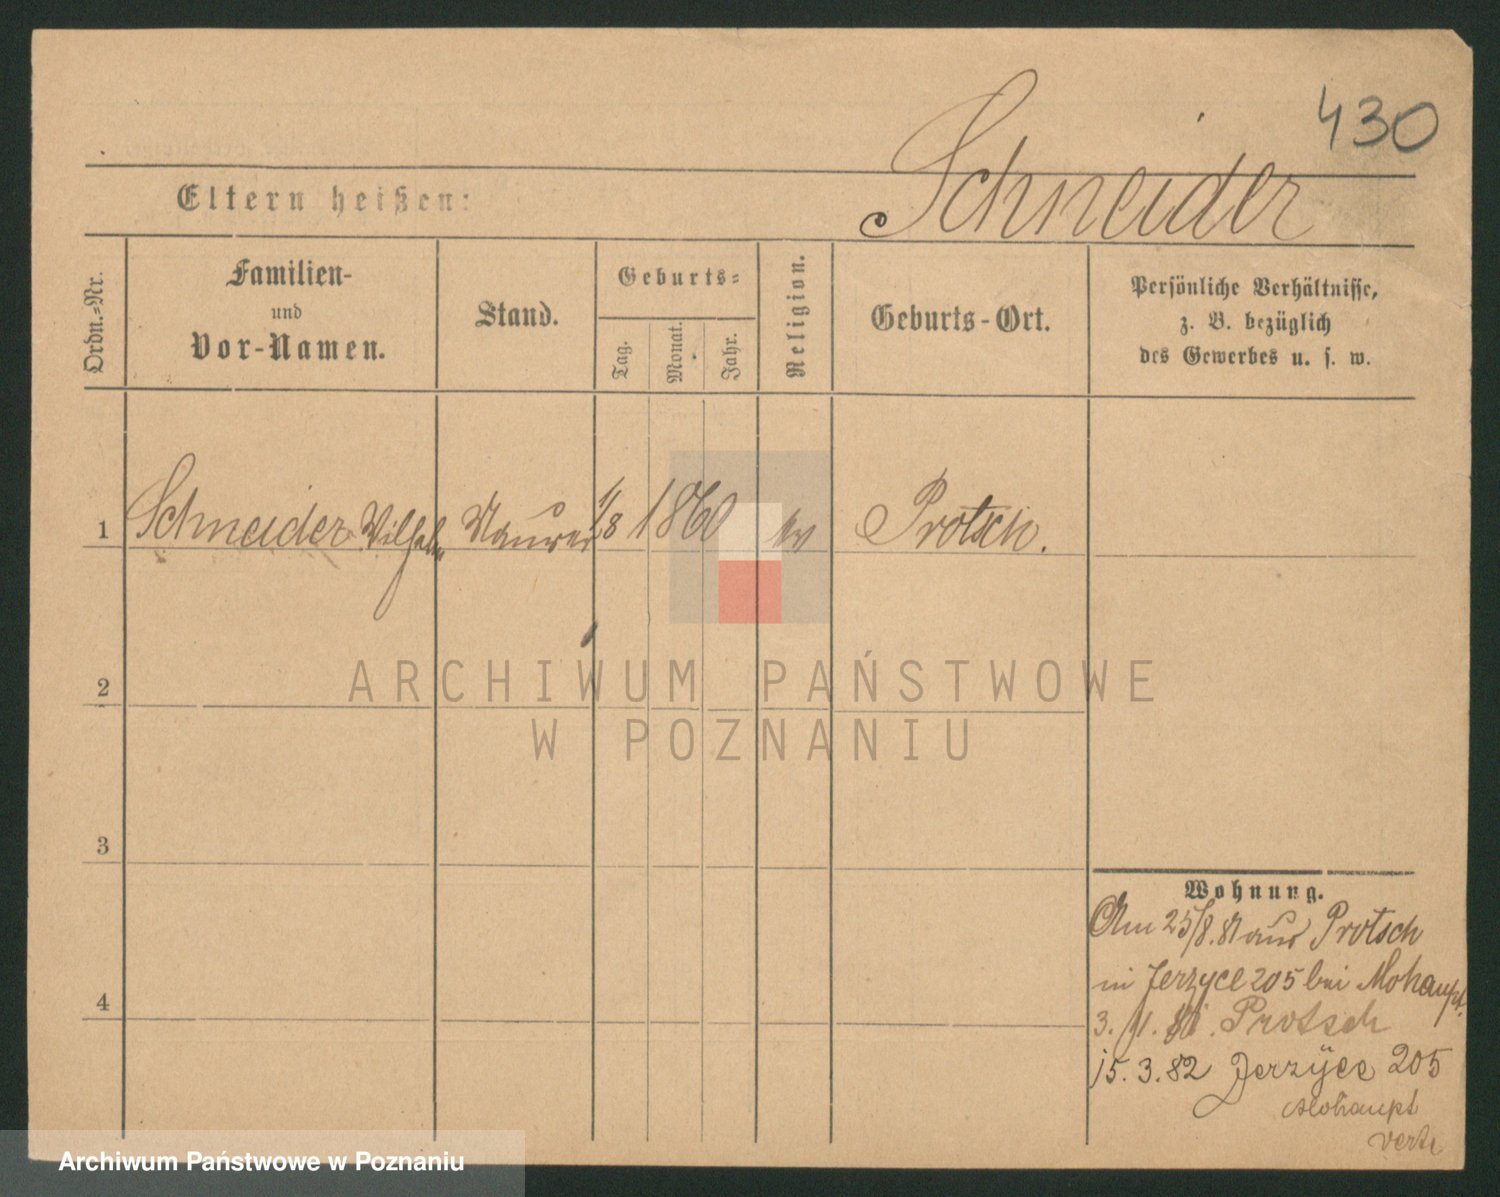 430
Schneider
Eltern heißen:
Ordn.-Nr.
Familien-
und
Vor-Namen.
Stand.
Geburts-
Tag.
Monat.
Jahr.
Religion.
Geburts-Ort.
Persönliche Verhältnisse,
z. B. bezüglich
des Gewerbes u. s. w.
1 Schneider Wilhelm Maurer 1/8 1860 ev Protsch.
2
3
4
Wohnung.
Am 25/8.81 aus Protsch
in Jerzyce 205 bei Mohaupt.
3. 11. 81. Protsch
15. 3. 82 Jerzÿce 205
Mohaupt
ARCHIWUM PAŃSTWOWE
W POZNANIU
Archiwum Państwowe w Poznaniu